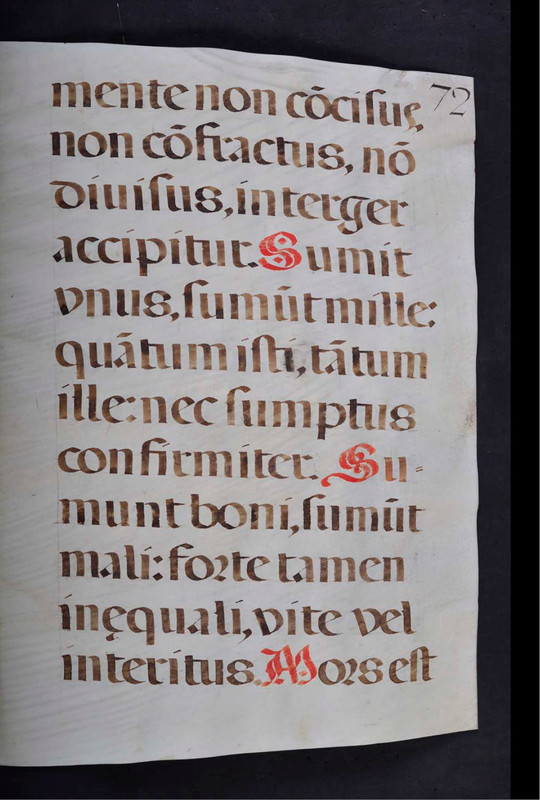 mente non cõciſus,
72
non cõfractus, nõ
diuiſus, interger
accipitur. Sumit
vnus, ſumũt mille:
quãtum iſti, tãtum
ille: nec ſumptus
confirmiter. Su-
munt boni, ſumũt
mali: forte tamen
inęquali, vite vel
interitus. Mors eſt